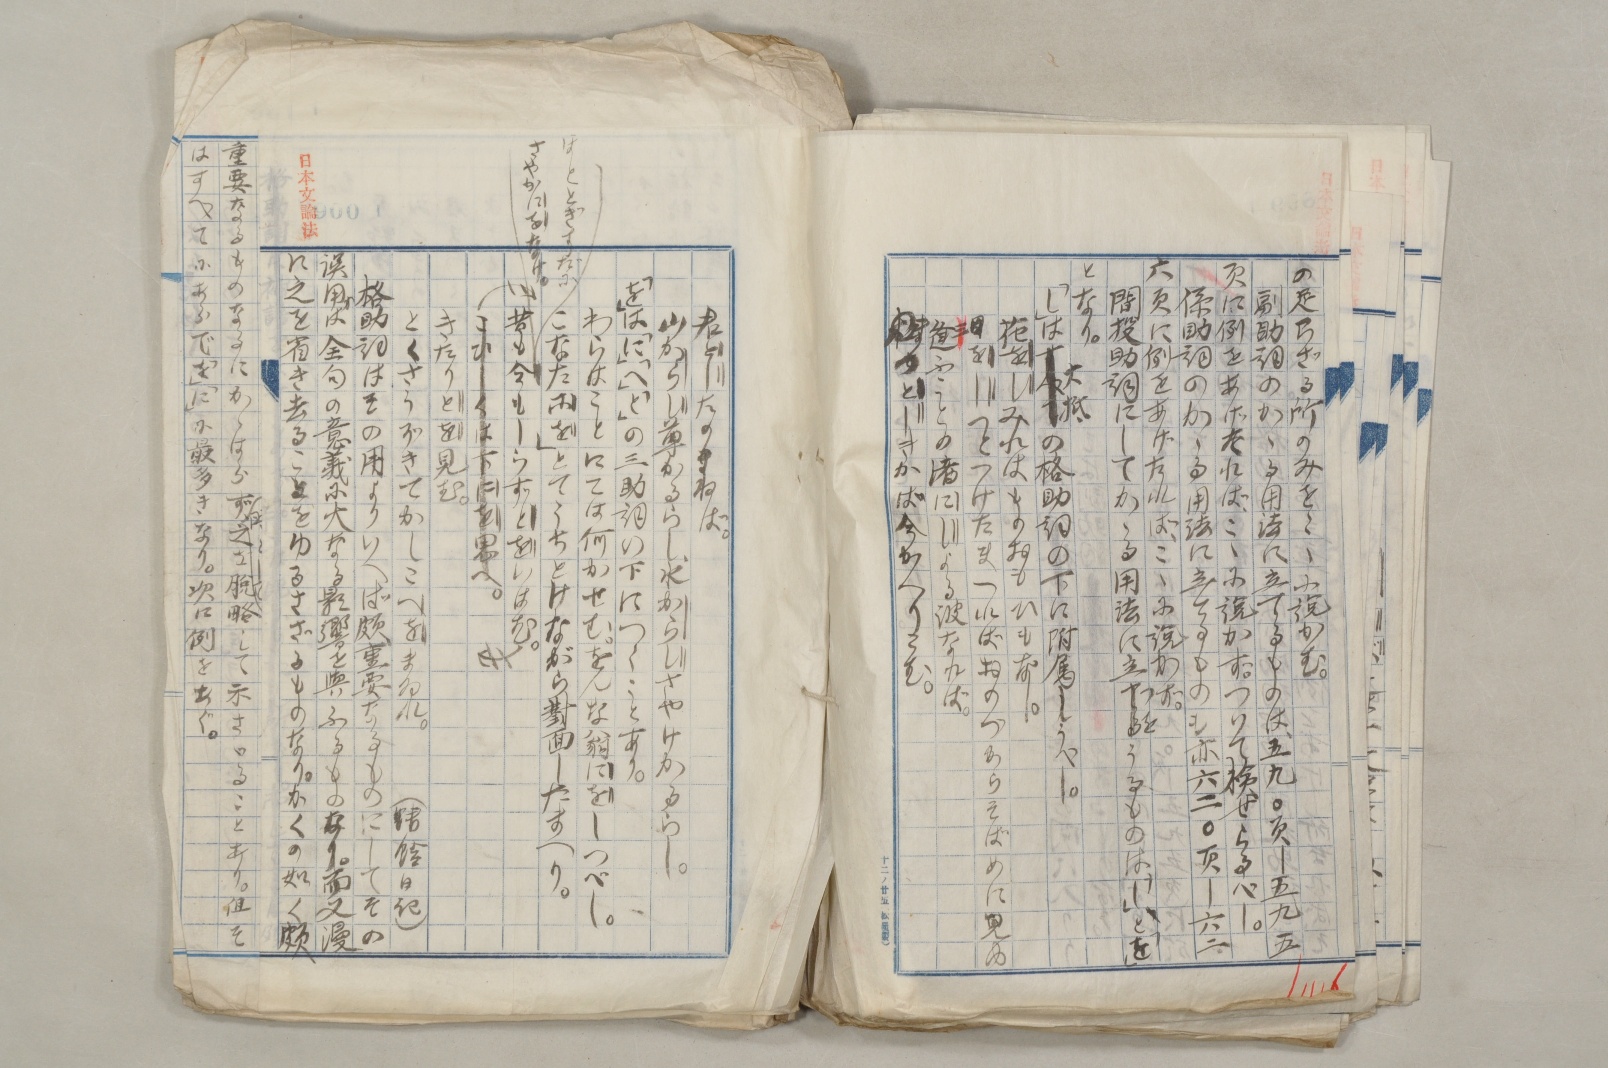 の足らざる所のみをこゝに説かむ。
副助詞のかゝる用法に立てるものは、五九〇頁ー五九五
頁に例をあげたれば、こゝに説かず。ついて検せらるべし。
係助詞のかゝる用法に立てるものも亦六二〇頁ー六二
六頁に例をあげたれば、こゝに説かず。
間投助詞にしてかゝる用法に立つをうるものは「し」と「を」
となり。
「し」は大抵の格助詞の下に附属しうべし。
花をしみればものおもひもなし。
日をしもつとつけたまつればおのづからそばめに見ゆ
逢ふことの渚にしよる波なれば。
時つとしきかば今かへりこむ。
君としたのまねば。
山からし草かるらし、水からしさやけかるらし。
「を」は「に」「へ」「と」の三助詞の下につくことあり。
わらはことにては何かせむ。をんな翁にをしつべし。
こなたにをとてうちとけながら對面したまへり。
ほととぎすだに
さやかにをなけ。
昔も今もしらずとをいはむ。
こひしくは下にを思へ。
きたりとを見む。
とくさうぞきてかしこへをまゐれ。
(蜻蛉日記)
格助詞はその用よりいへば頗重要なるものにしてその
誤用は全句の意義に大なる影響を與ふるものなり。而又漫
に之を省き去ることをゆるさざるものなり。かくの如く頗
日本文論法
重要なるものなるにかゝはらず之を脱略して示さゞることあり。但そ
はすべてにあらで「を」「に」に最多きなり。次に例をあぐ。